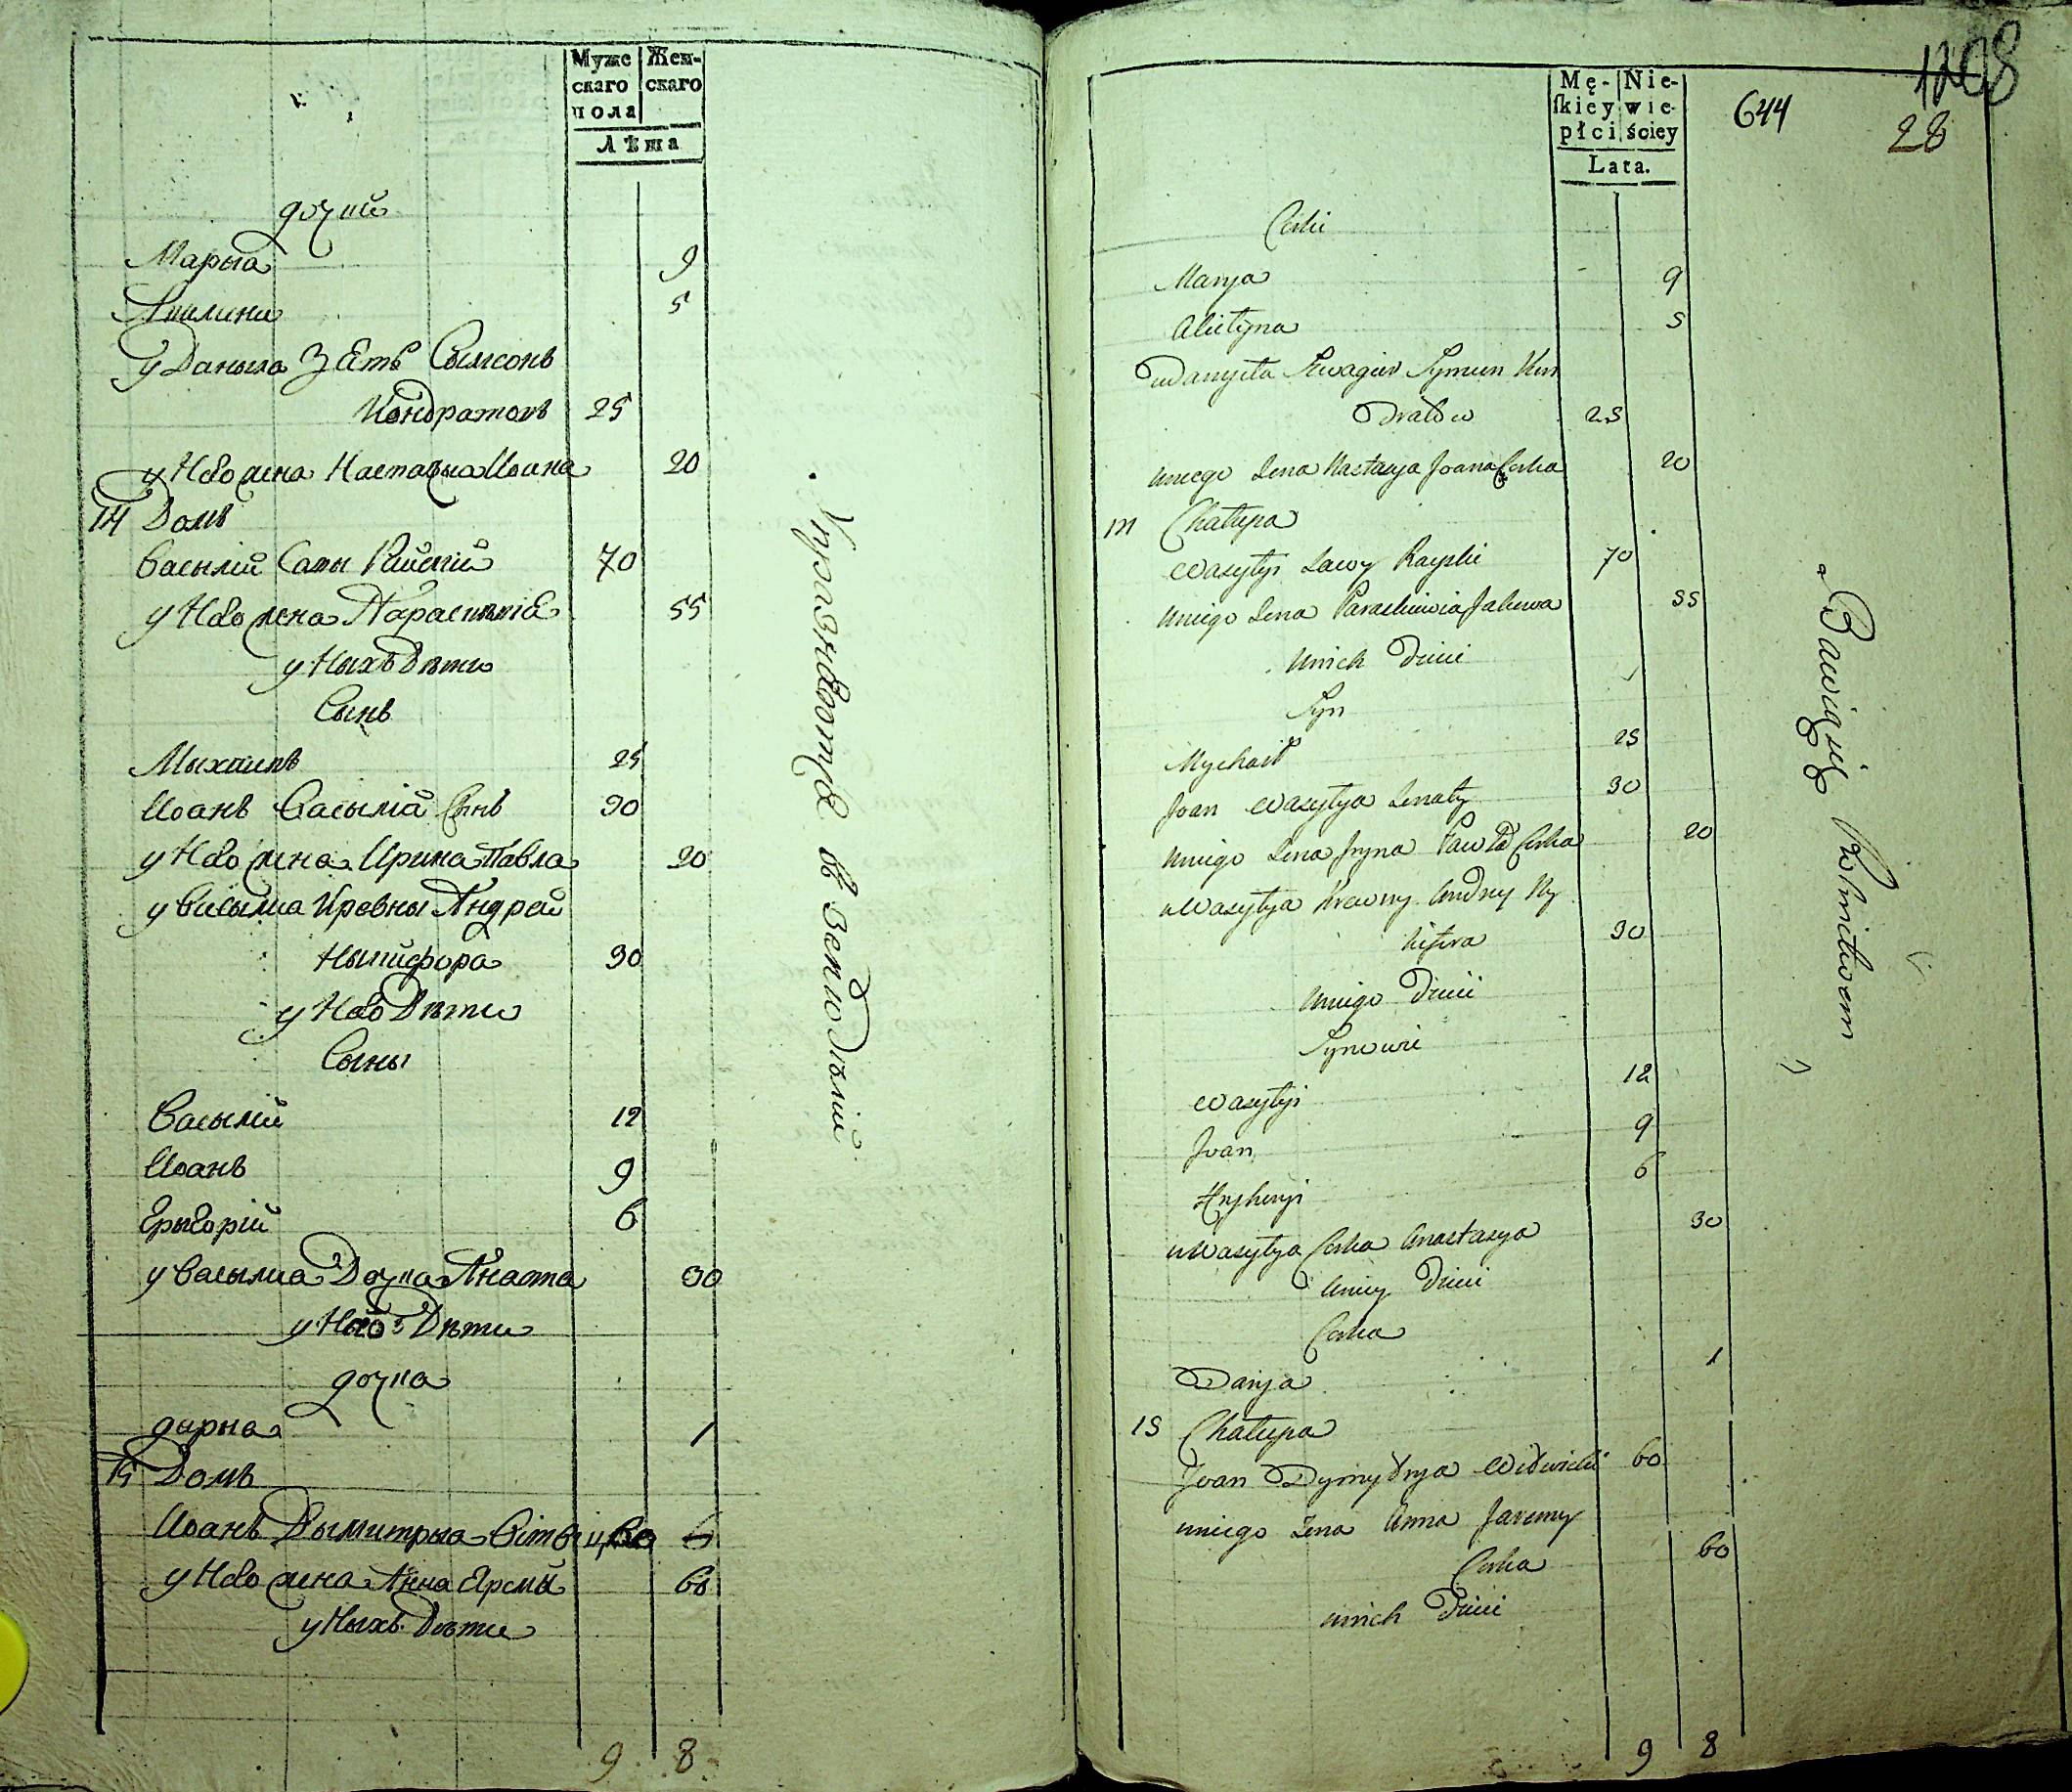 Муже Жен-
скаго скаго
пола
Лѣта
дочки
Марыа 9
Акилина 5
у Даныла Зеть Сымеонъ
Кондратовъ 25
у Него жена Настасыа Иоана 20
14 Домъ
Васылій Савы Райскій 70
у Него жена Параскивіа 55
у Ныхъ Дѣти
Сынъ
Мыхаилъ 25
Иоанъ Васыліа Сынъ 30
у Него жена Ирина Павла 20
у Васылиа Кревны Андрей
Ныкифора 30
у Него Дѣти
Сыны
Васылій 12
Иоанъ 9
Григорій 6
у Васылиа Дочка Анаста 30
у Ней Дѣти
дочка
дарыа 1
15 Домъ
Иоанъ Дымитрыа 60
у Него жена Анна Яремы 60
у Ныхъ Дѣти
9 8
Упразнаютса в Земледѣліи
Mę- Nie-
skiey wie-
płci ściey
Lata.
644
28
Corki
Marya 9
Akilyna 5
u Danyła Szwagier Symeon Kon
dratow 25
u niego Żena Nastasya Joana Corka 20
14 Chałupa
Wasylyi Sawy Rayski 70
u niego Żena Paraskiwia Jakowa 55
u nich Dzieci
Syn
Mychaił 25
Joan Wasylya Żonaty 30
u niego Żena Jryna Pawła Corka 20
u Wasylya Krewny Andrey Ny
kifora 30
u niego Dzieci
Synowie
Wasylyi 12
Joan 9
Hryhoryi 6
u Wasylya Corka Anastasya 30
u niey Dzieci
Corka
Darya 1
15 Chałupa
Joan Dymytrya Witwicki 60
u niego Żena Anna Jaremy
Corka 60
u nich Dzieci
9 8
Bawią się Rolnictwem